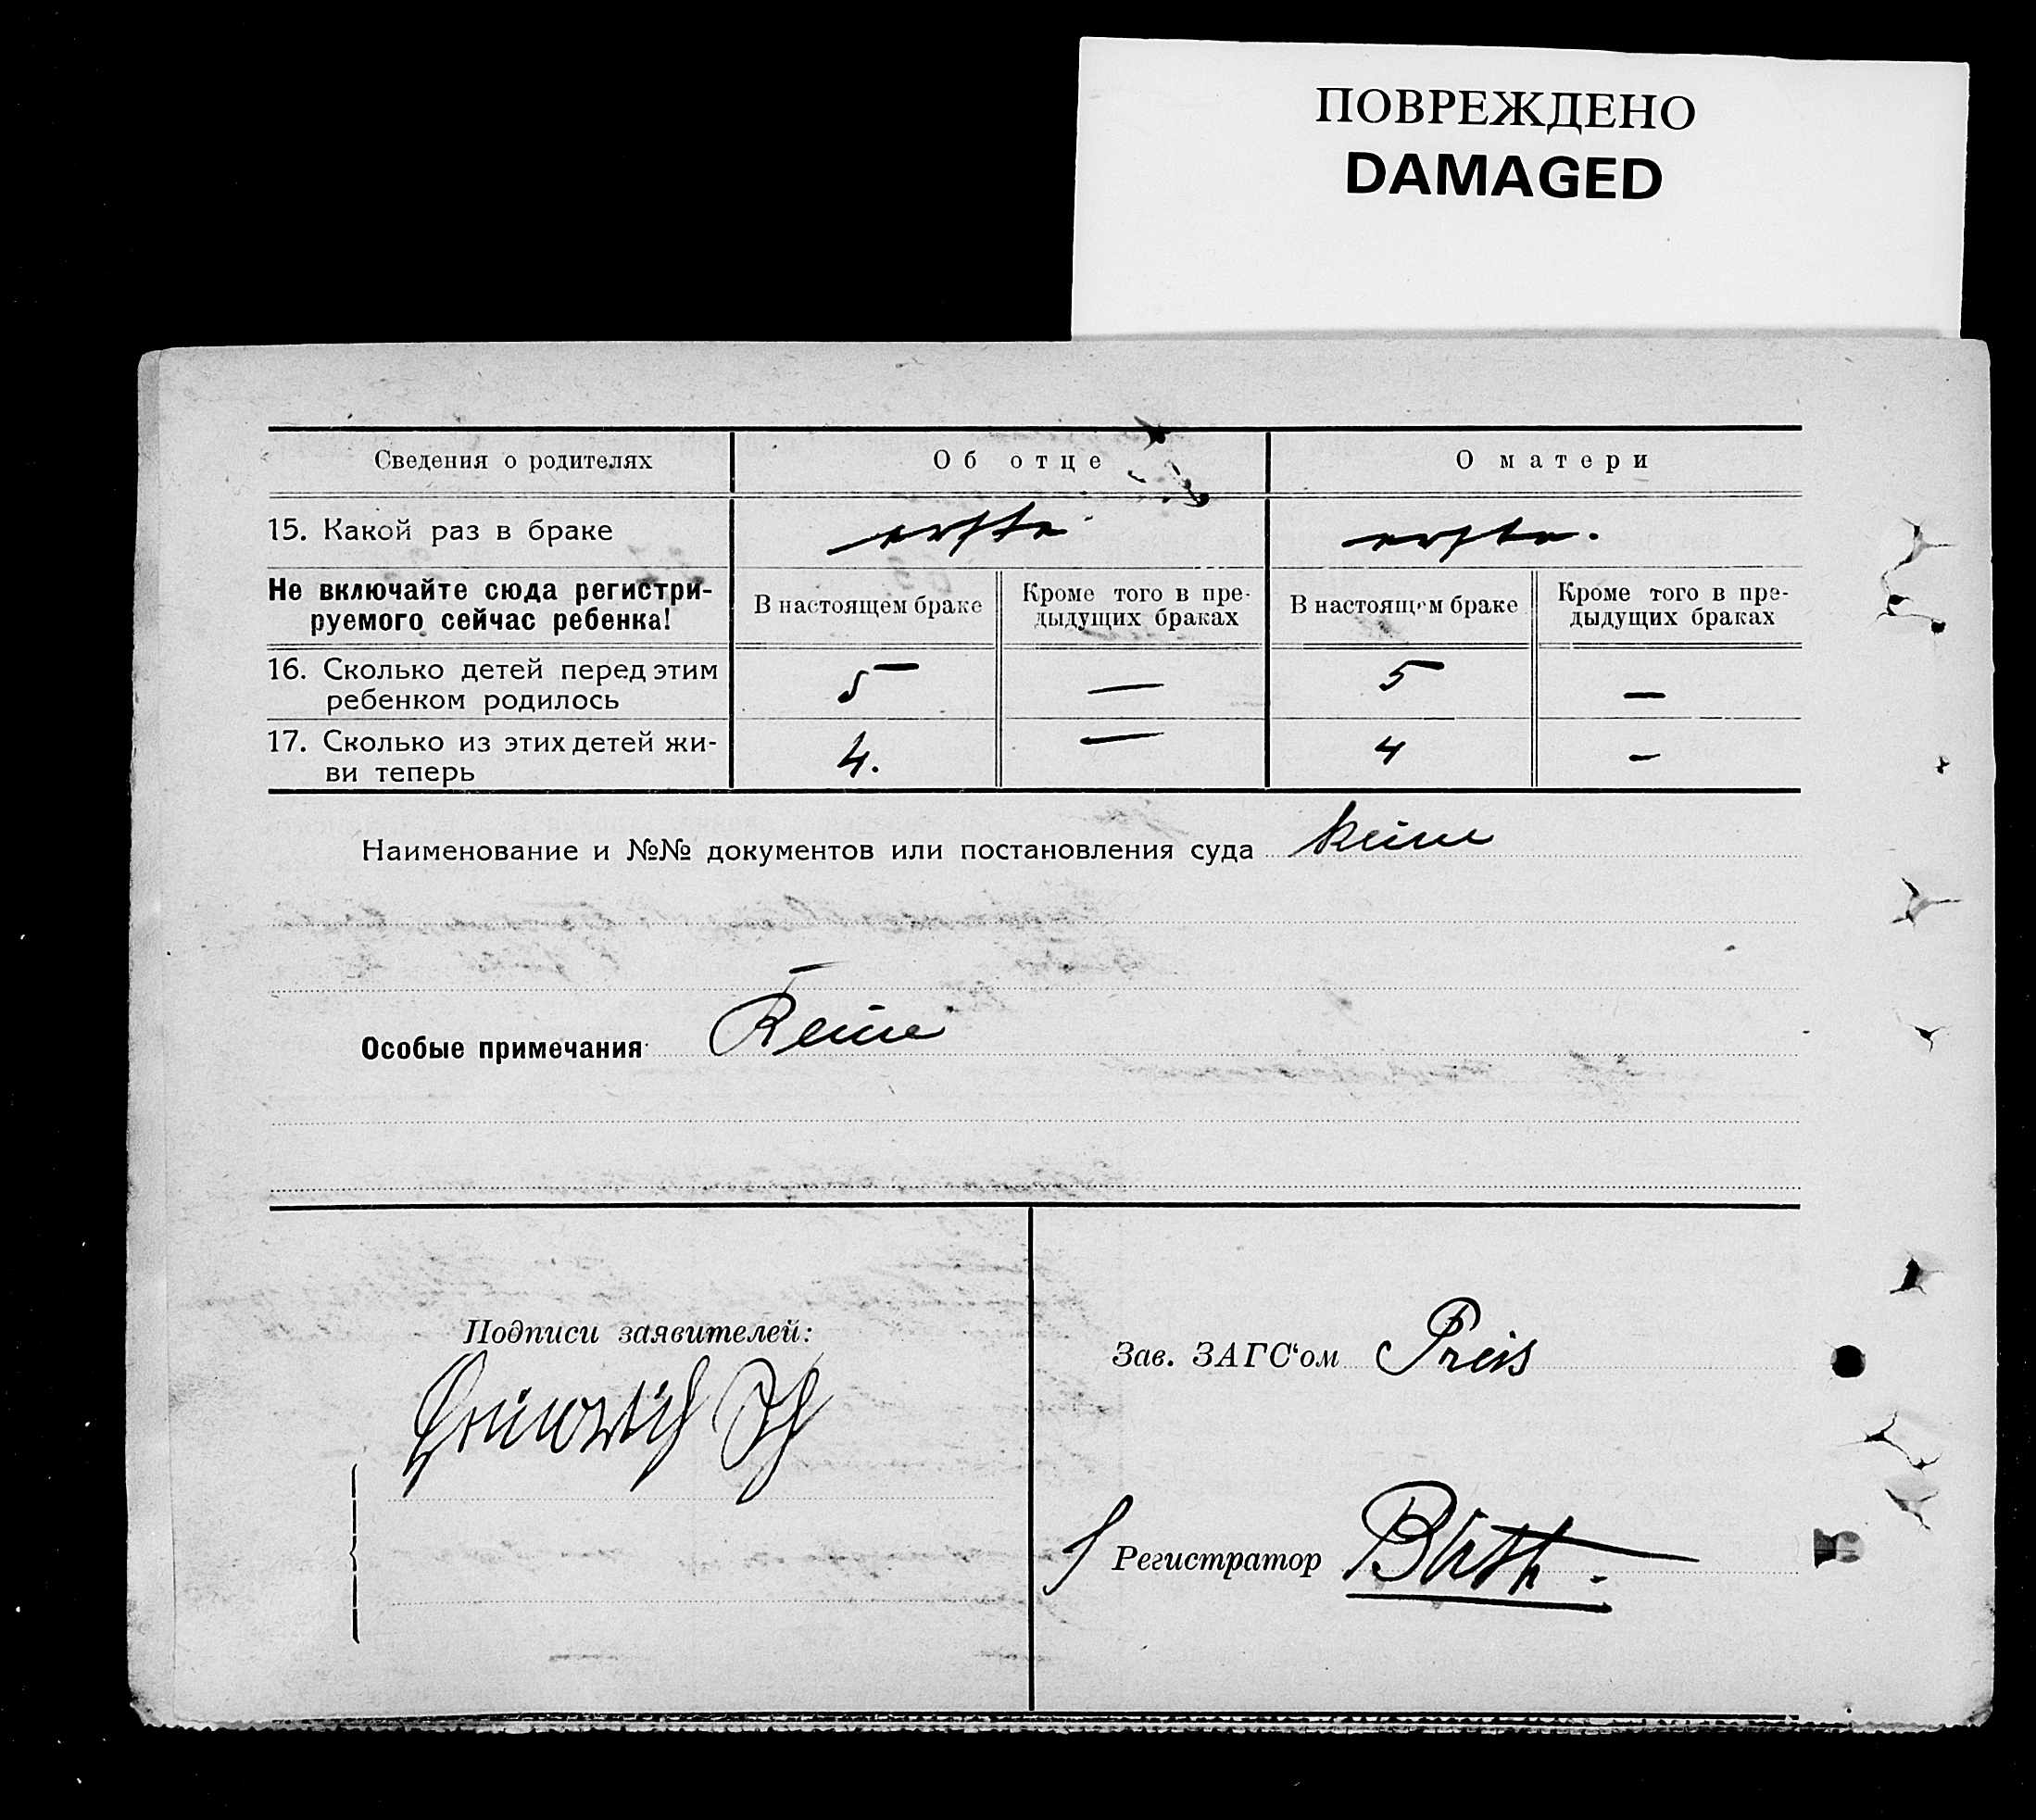 ПОВРЕЖДЕНО
DAMAGED
Сведения о родителях Об отце О матери
15. Какой раз в браке erste erste.
Не включайте сюда регистри-
руемого сейчас ребенка!
В настоящем браке
Кроме того в пре-
дыдущих браках
В настоящем браке
Кроме того в пре-
дыдущих браках
16. Сколько детей перед этим
ребенком родилось 5 — 5 —
17. Сколько из этих детей жи-
ви теперь 4. — 4 -
Наименование и №№ документов или постановления суда keine
Особые примечания Keine
Подписи заявителей:
Heinrich
Зав. ЗАГС‘ом Preis
Регистратор